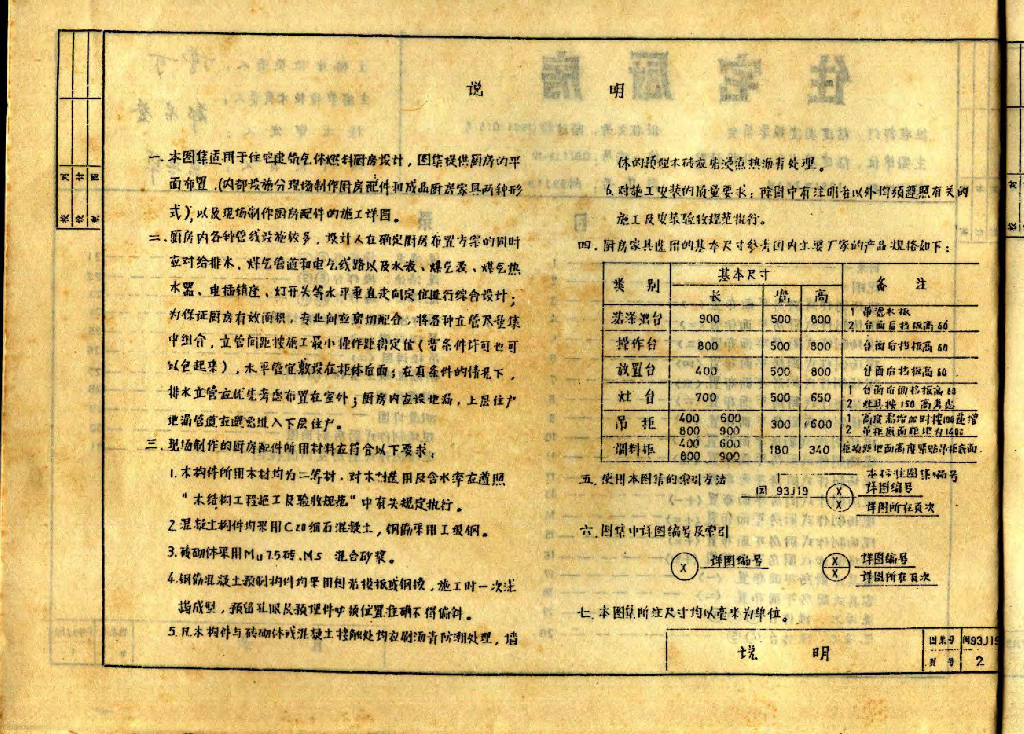 说 明
一、本图集适用于住宅建筑气体燃料厨房设计，图集提供厨房的平
面布置，(内部设施分现场制作厨房配件和成品厨房家具两种形
式)，以及现场制作厨房配件的施工详图。
二、厨房内各种管线设施较多，设计人在确定厨房布置方案的同时
应对给排水、煤气管道和电气线路以及水表、煤气表、煤气热
水器、电插销座、灯开关等水平垂直走向定位进行综合设计；
为保证厨房有效面积，专业间应密切配合，将各种立管尽量集
中组合，立管间距按施工最小操作距离定位(若条件许可也可
以包起来)，水平管宜敷设在柜体后面；在有条件的情况下，
排水立管应优先考虑布置在室外；厨房内应设地漏，上层住户
地漏管道应避免进入下层住户。
三、现场制作的厨房配件所用材料应符合以下要求：
1.木构件所用木材均为二等材，对木材选用及含水率应遵照
"木结构工程施工及验收规范"中有关规定执行。
2.混凝土构件均采用C20细石混凝土，钢筋采用工级钢。
3.砖砌体采用Mu7.5砖，M5 混合砂浆。
4.钢筋混凝土预制构件均采用刨光模板或钢模，施工时一次浇
捣成型，预留孔眼及预埋件必须位置准确不得偏斜。
5.凡木构件与砖砌体或混凝土接触处均应刷沥青防潮处理，墙
体的预埋木砖应先浸煮热沥青处理。
6.对施工安装的质量要求：除图中有注明者以外均须遵照有关的
施工及安装验收规范执行。
四、厨房家具选用的基本尺寸参考国内主要厂家的产品规格如下：
类 别 基本尺寸 备 注
长 宽 高
洗涤池台 900 500 800 1 带滤水板 2 台面后挡板高50
操作台 800 500 800 台面后挡板高50
放置台 400 500 800 台面后挡板高50
灶 台 700 500 650 1 台面后面挡板高50 2 灶具按150高考虑
吊 柜 400 600 800 900 300 ≮600 1 高度若增加时按100递增 2 吊柜底面距地为1400
调料柜 400 600 800 900 180 340 柜底距地面高度紧贴吊柜底面
五、使用本图集的索引方法
闽 93J19 X X 本标准图集编号
详图编号
详图所在页次
六、图集中详图编号及索引
X 详图编号 X X 详图编号
详图所在页次
七、本图集所注尺寸均以毫米为单位。
说 明
图集号 闽93J19
页 号 2